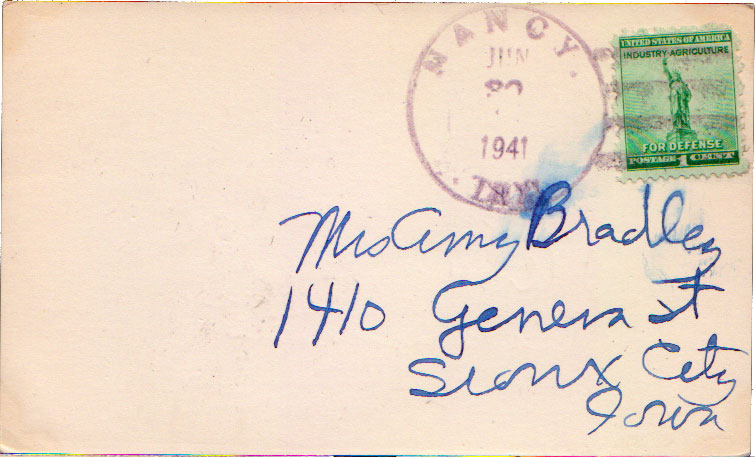 NANCY.
JUN
1941
KY.
UNITED STATES OF AMERICA
INDUSTRY-AGRICULTURE
FOR DEFENSE
POSTAGE 1 CENT
Mrs Amy Bradley
1410 Geneva St
Sioux City
Iowa